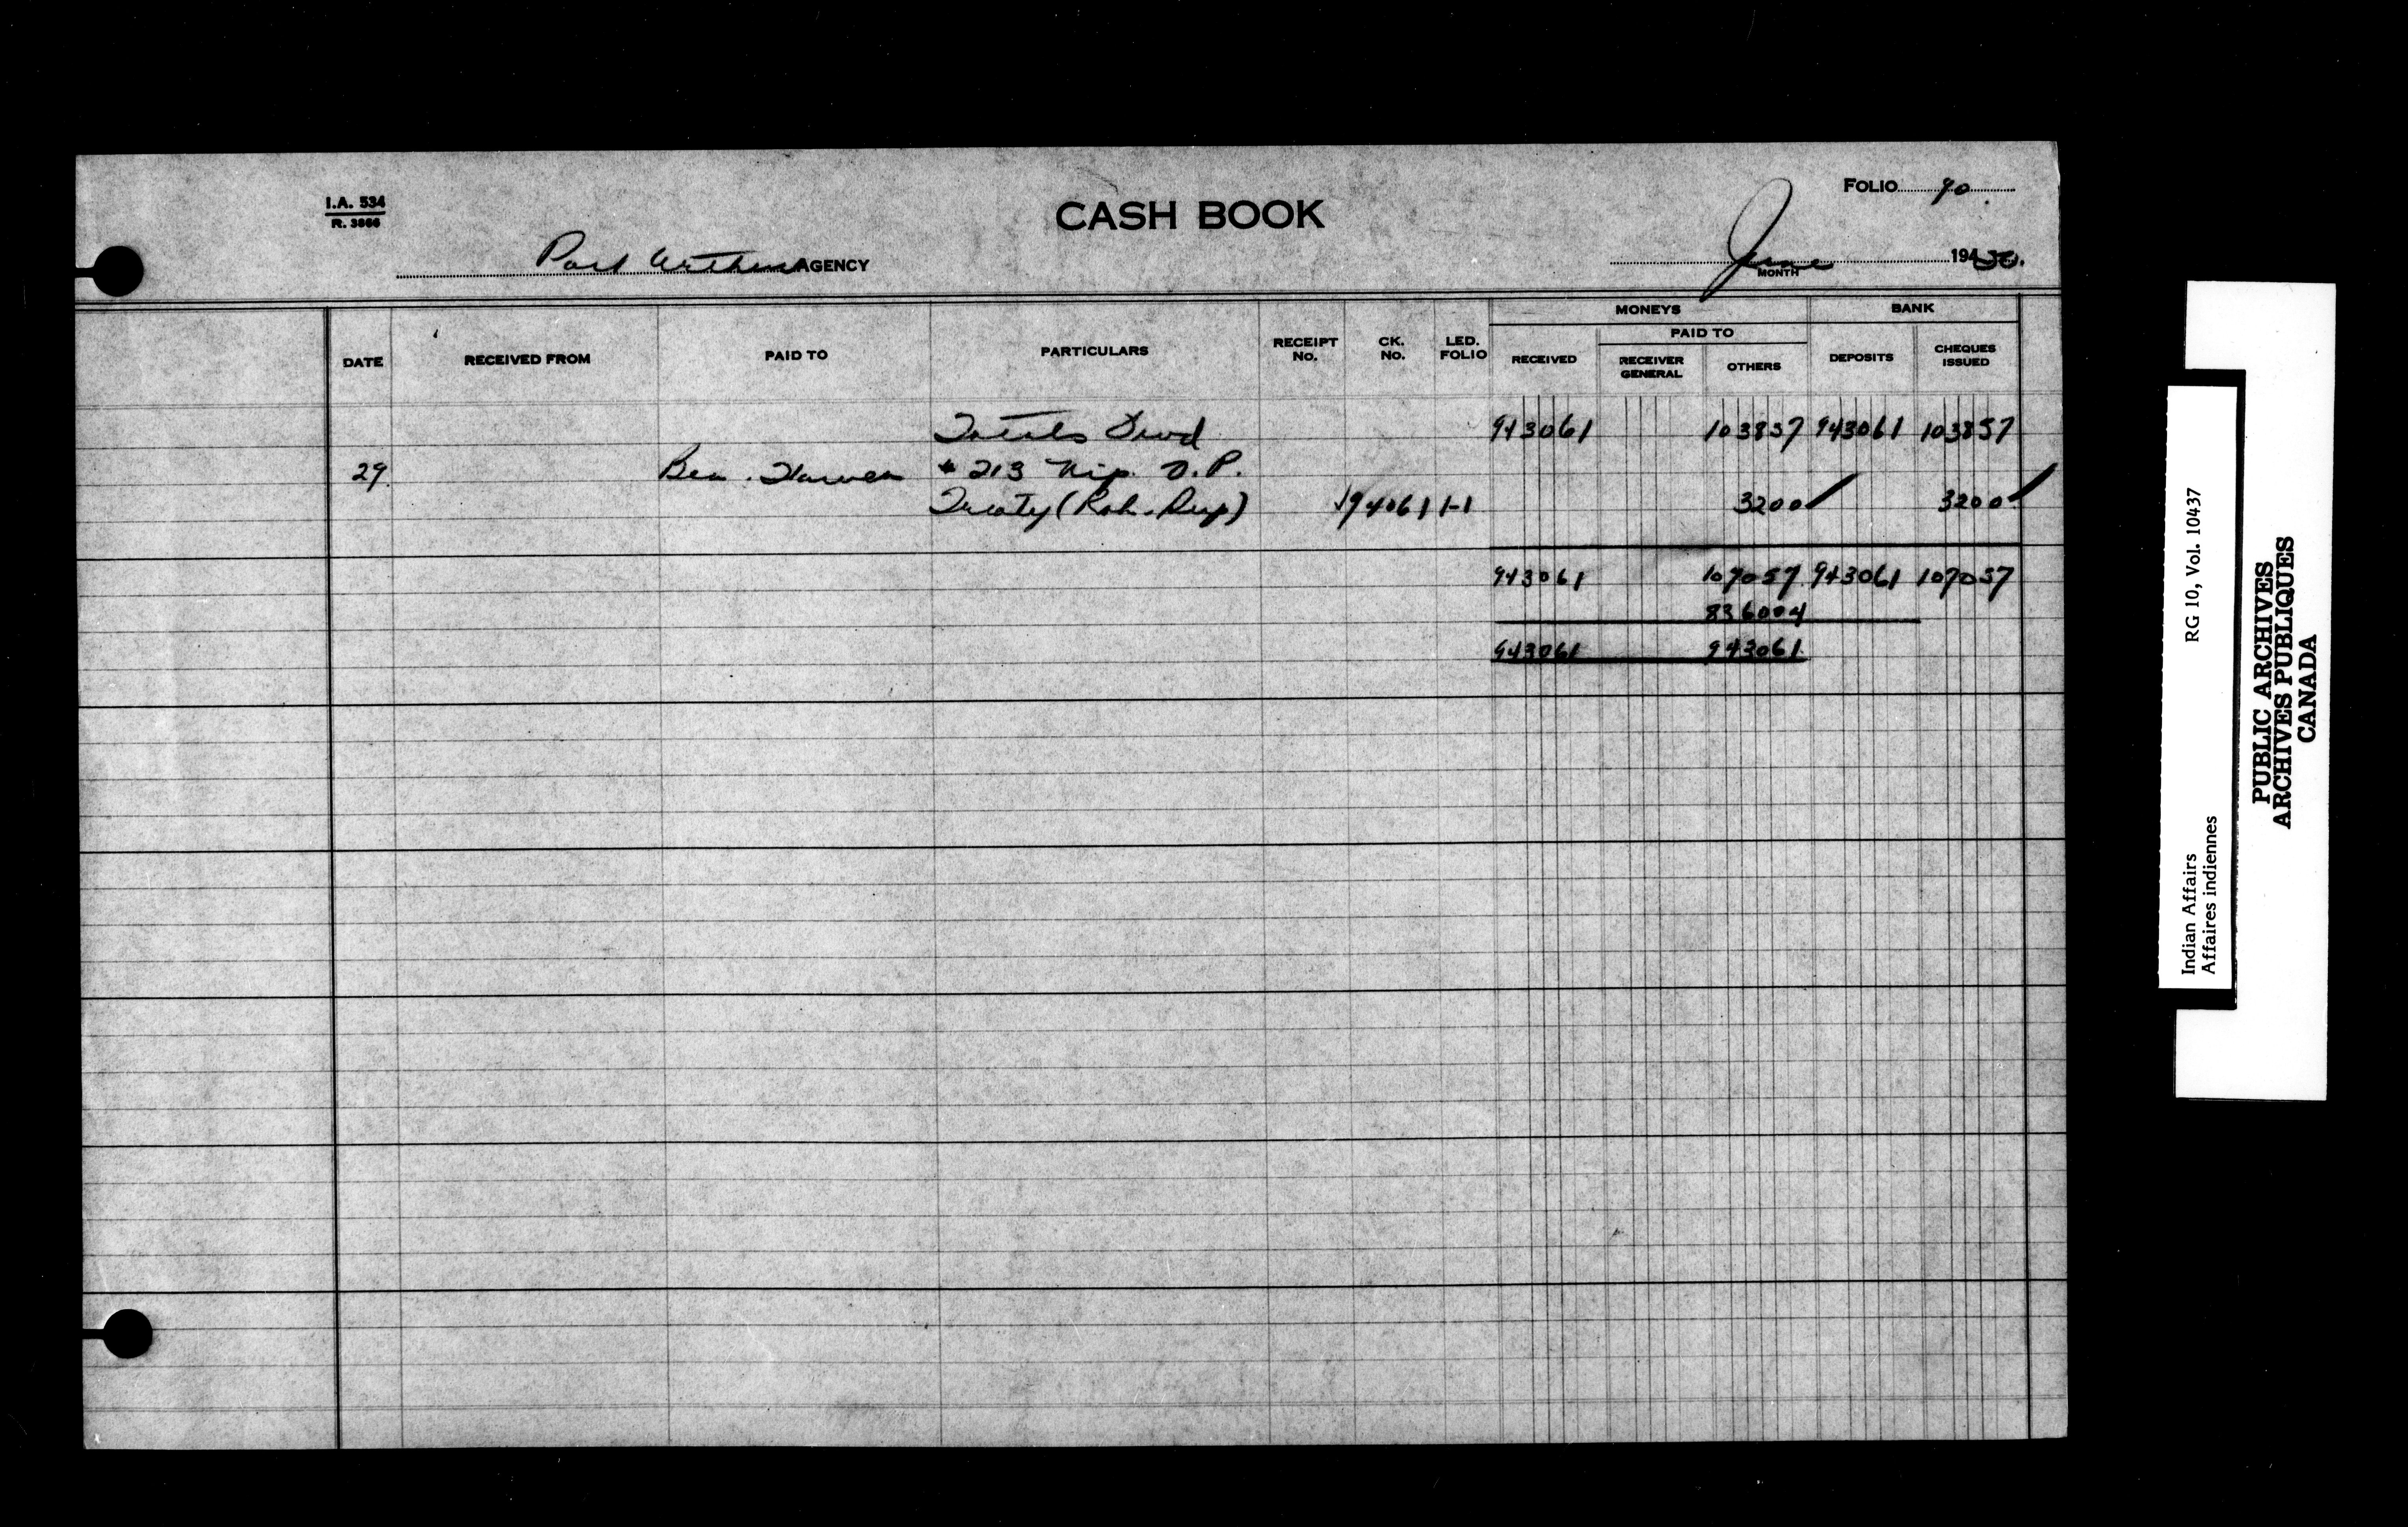 I.A. 534
R. 3866
CASH BOOK
FOLIO 90
Port Arthur AGENCY
June 1950.
MONTH
MONEYS BANK
PAID TO
DATE RECEIVED FROM PAID TO PARTICULARS RECEIPT No. CK. No. LED. FOLIO RECEIVED RECEIVER GENERAL OTHERS DEPOSITS CHEQUES ISSUED
Totals Fwd 943061 103857 943061 103857
29 Ben. # 213 Nip. O.P.
Treaty 94061 1-1 3200 3200
943061 107057 943061 107057
836004
943061 943061
Indian Affairs RG 10, Vol. 10437
Affaires indiennes
PUBLIC ARCHIVES
ARCHIVES PUBLIQUES
CANADA